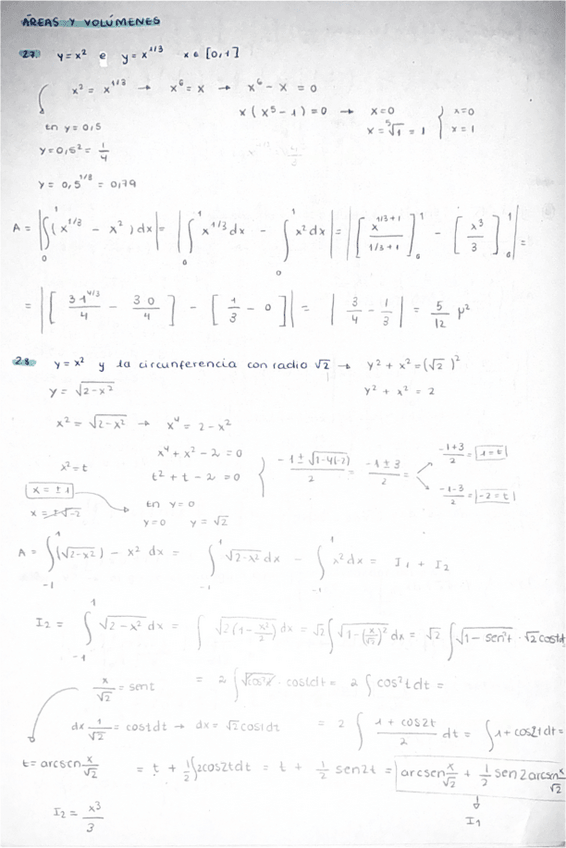 ÁREAS Y VOLÚMENES
27. y = x² e y = x^1/3 x ∈ [0,1]
x² = x^1/3 → x⁶ = x → x⁶ - x = 0
x(x⁵ - 1) = 0 → x = 0 x = 0
x = ⁵√1 = 1 x = 1
En y = 0,5
y = 0,5² = 1/4
y = 0,5^1/3 = 0,79
A = |∫₀¹ (x^1/3 - x²) dx| = |∫₀¹ x^1/3 dx - ∫₀¹ x² dx| = |[x^(1/3+1) / (1/3+1)]₀¹ - [x³/3]₀¹| =
= |[3·1^4/3 / 4 - 3·0/4] - [1/3 - 0]| = |3/4 - 1/3| = 5/12 μ²
28. y = x² y la circunferencia con radio √2 → y² + x² = (√2)²
y = √(2-x²) y² + x² = 2
x² = √(2-x²) → x⁴ = 2 - x²
x⁴ + x² - 2 = 0
x² = t t² + t - 2 = 0 (-1 ± √(1-4(-2)))/2 = (-1 ± 3)/2 = (-1+3)/2 = 1 = t
(-1-3)/2 = -2 = t
x = ±1
x = ±√-2 En y = 0
y = 0 y = √2
A = ∫₋₁¹ (√(2-x²)) - x² dx = ∫₋₁¹ √(2-x²) dx - ∫₋₁¹ x² dx = I₁ + I₂
I₂ = ∫₋₁¹ √(2-x²) dx = ∫ √(2(1-x²/2)) dx = √2 ∫ √(1-(x/√2)²) dx = √2 ∫ √(1-sen²t) · √2 cost dt
x/√2 = sent = 2 ∫ √cos²x · cost dt = 2 ∫ cos²t dt =
dx 1/√2 = cost dt → dx = √2 cost dt = 2 ∫ (1 + cos2t)/2 dt = ∫ 1 + cos2t dt =
t = arcsen x/√2 = t + 1/2 ∫ 2cos2t dt = t + 1/2 sen2t = arcsen x/√2 + 1/2 sen 2arcsen x/√2
I₂ = x³/3 I₁